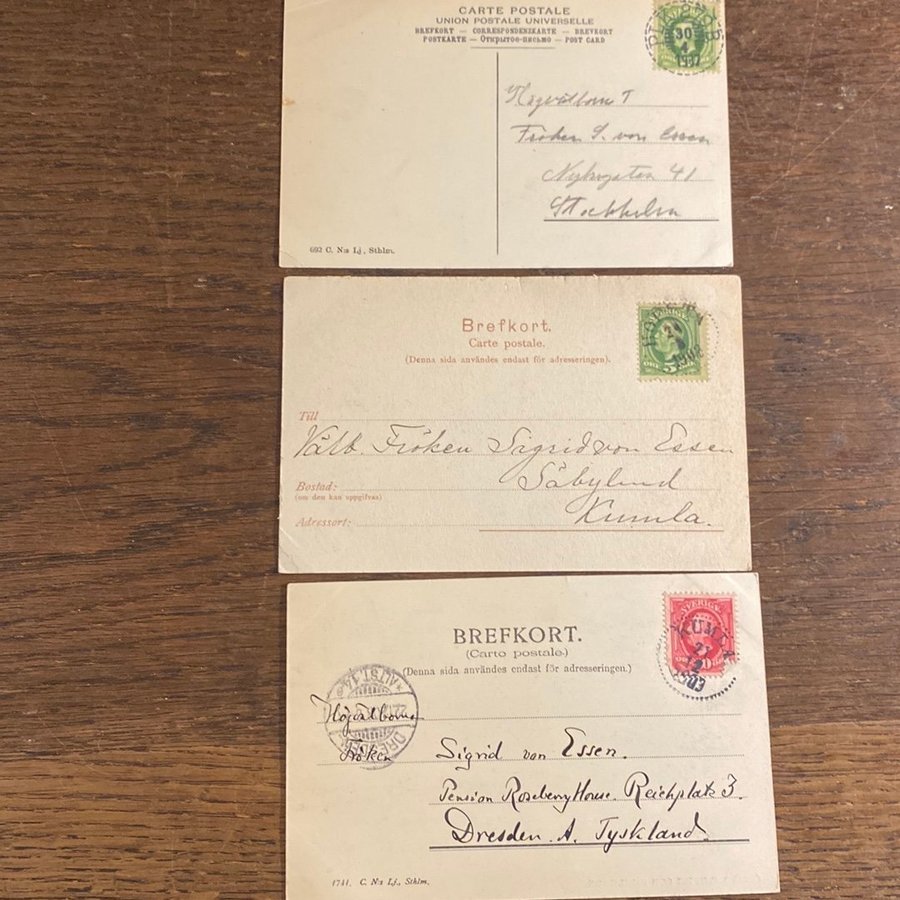 CARTE POSTALE
UNION POSTALE UNIVERSELLE
BREFKORT — CORRESPONDENZKARTE — BREVKORT
POSTKARTE — Открытое-письмо — POST CARD
30
4
Fröken S. von Essen
41
Stockholm
692 C. N:s Lj, Sthlm.
Brefkort.
Carte postale.
(Denna sida användes endast för adresseringen).
SVERIGE
5
Till
Välb. Fröken Sigrid von Essen
Bostad:
Säbylund
(om den kan uppgifvas)
Adressort:
Kumla.
BREFKORT.
(Carto postale.)
(Denna sida användes endast för adresseringen.)
SVERIGE
KUMLA
1903
ALTST. 14
DRESDEN
Högvälborna
Fröken
Sigrid von Essen.
Pension Roseberry House. Reichplatz 3.
Dresden. A. Tyskland.
1741. C. N:s Lj., Sthlm.